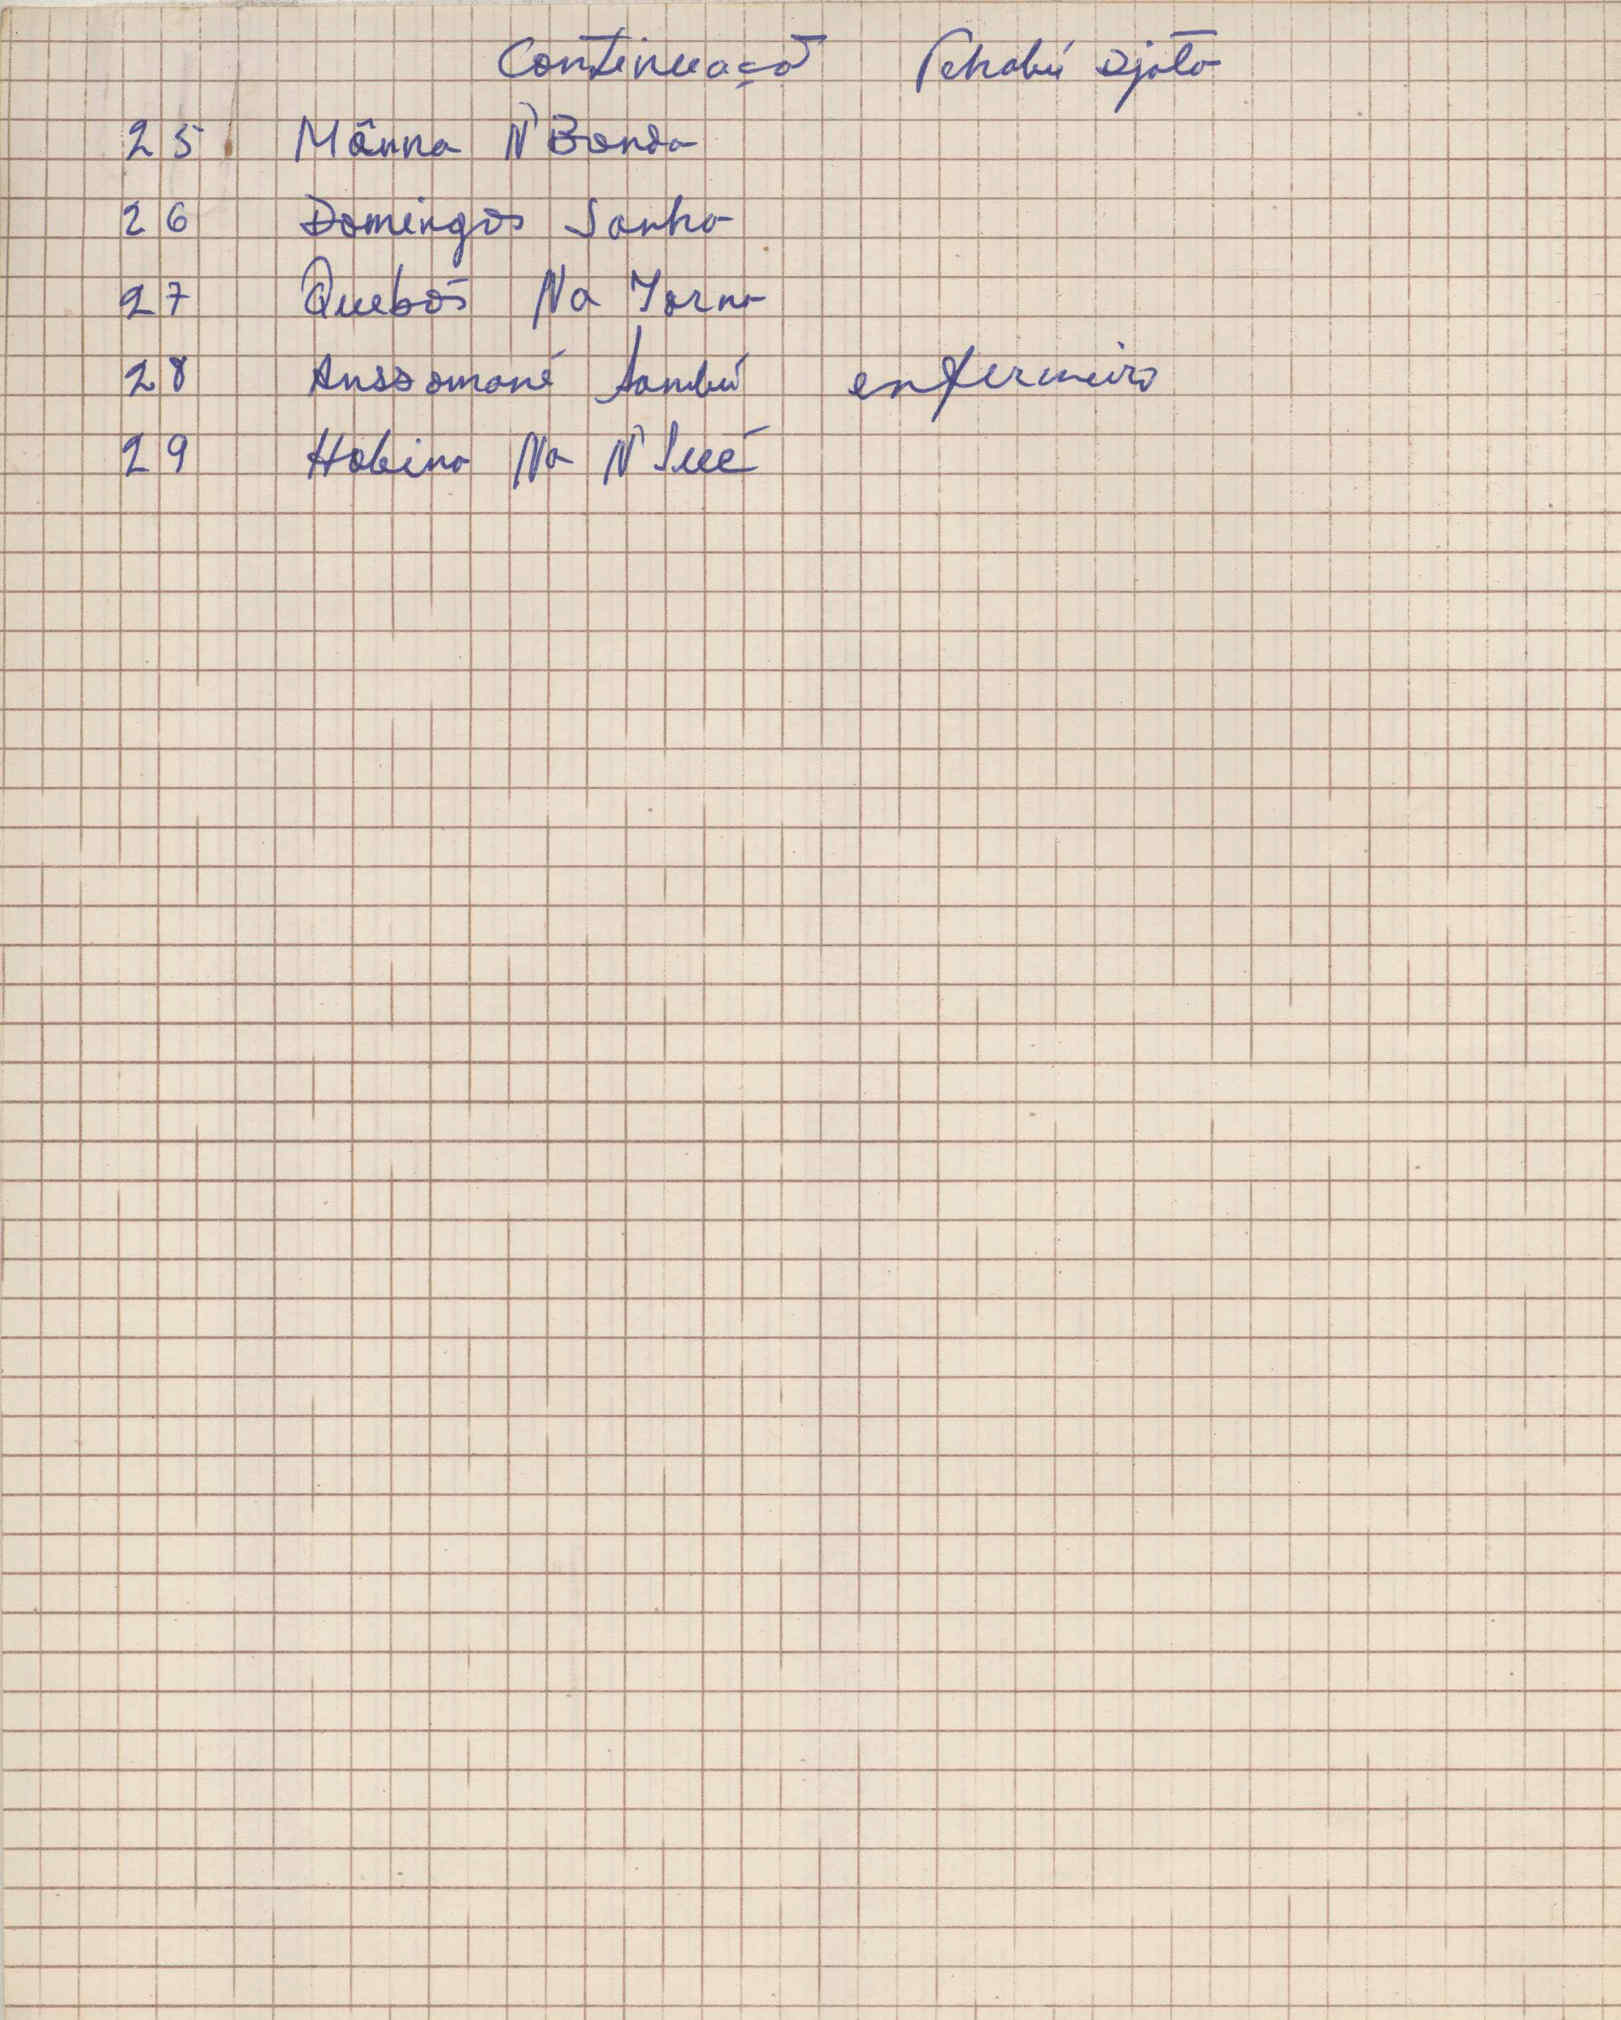 Continuação Tchabú Djata
25 Mânna N'Bonda
26 Domingos Sanha
27 Quebós Na Yorna
28 Anssomané Sambú enfermeiro
29 Habina Na N'Sué